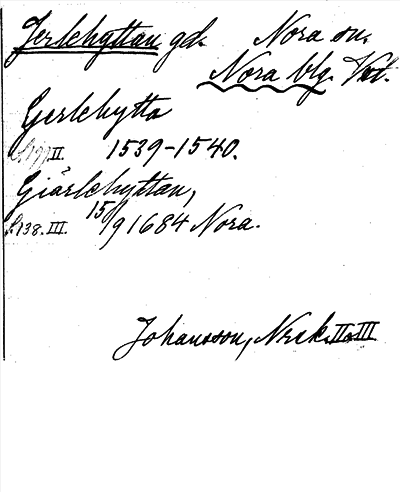 Jerlehyttan gd. Nora sn.
Nora blg. Vstl.
Gerlehytta
s. 177. II. 1539-1540.
Giärlehyttan,
s. 138. III. 15/9 1684 Nora.
Johansson, Nrsk. II o. III